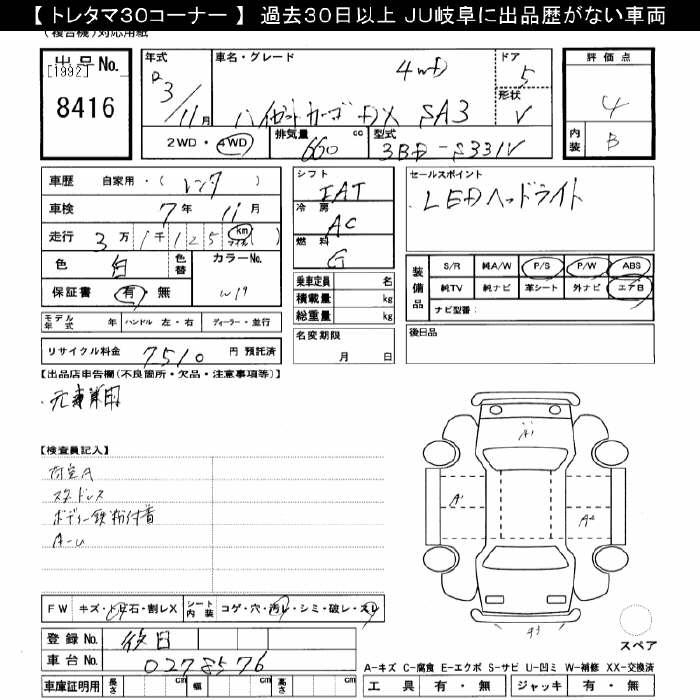 【 トレタマ30コーナー 】 過去30日以上 JU岐阜に出品歴がない車両
(複合機)対応用紙
出品No.
[1992]
8416
年式 R3/11月
車名・グレード
4WD
ハイゼットカーゴ DX SA3
ドア 5
形状 V
2WD・4WD
排気量 660 cc
型式 3BD-S331V
評価点 4
内装 B
車歴 自家用・( レンタ )
車検 7年 11月
走行 3万1千125 km マイル( )
色 白 色替 カラーNo. W19
保証書 有 無
モデル年式 年 ハンドル 左・右 ディーラー・並行
リサイクル料金 7510 円 預託済
シフト IAT
冷房 AC
燃料 G
乗車定員 名
積載量 kg
総重量 kg
名変期限
月 日
セールスポイント
LEDヘッドライト
装備品
S/R 純A/W P/S P/W ABS
純TV 純ナビ 革シート 外ナビ エアB
ナビ型番:
後日品
【出品店申告欄(不良箇所・欠品・注意事項等)】
【検査員記入】
スタッドレス
ボディー鉄粉付着
A-U
A1
A1
A2
FW キズ・トビ石・割レX シート内装 コゲ・穴・汚レ・シミ・破レ・スレ
登録No. 後日
車台No. 0278576
車庫証明用 長さ cm 幅 cm 高さ cm
スペア
A-キズ C-腐食 E-エクボ S-サビ U-凹ミ W-補修 XX-交換済
工具 有・無 ジャッキ 有・無